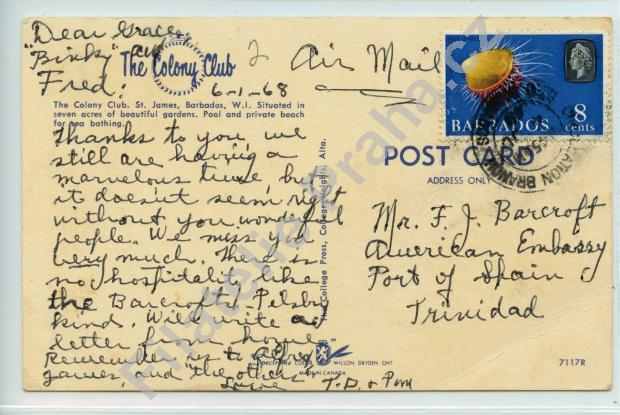 Dear Grace,
"Binky" and
Fred:
The Colony Club
6-1-68
The Colony Club. St. James, Barbados, W.I. Situated in
seven acres of beautiful gardens. Pool and private beach
for sea bathing.
Thanks to you, we
still are having a
marvelous time, but
it doesn't seem right
without you wonderful
people. We miss you
very much. There is
no hospitality like
the Barcrofts,
kind. Will write a
letter from home
Remember us to
James, and "the others"
T.D. &
The College Press, College Heights, Alta.
Air Mail
BARBADOS 8
cents
POST CARD
ADDRESS ONLY
Mr. F. J. Barcroft
American Embassy
Port of Spain
Trinidad
COLOR WILSON, DRYDEN, ONT
MADE IN CANADA
7117R
Filatelie-Praha.cz